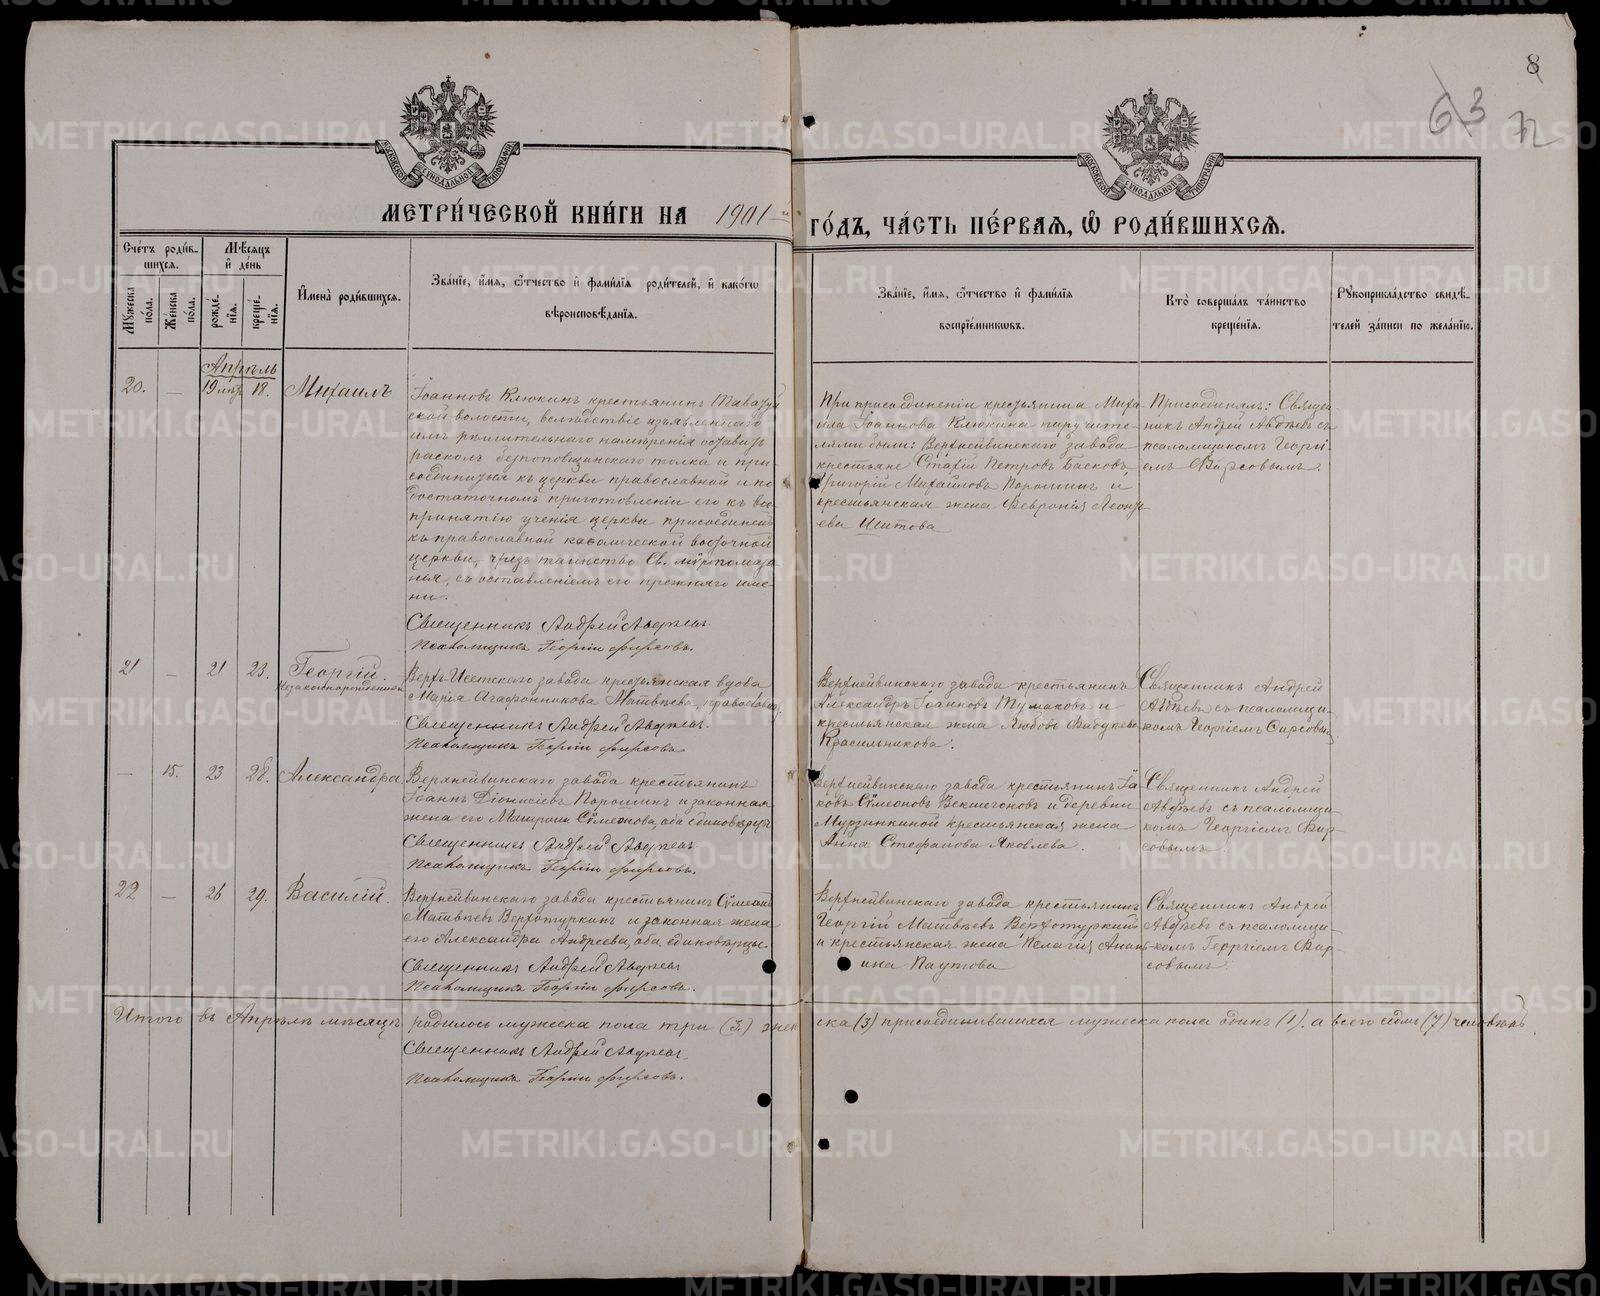 8
63
72
МОСКОВСКОЙ СѴНОДАЛЬНОЙ ТИПОГРАФІИ
МОСКОВСКОЙ СѴНОДАЛЬНОЙ ТИПОГРАФІИ
МЕТРИ́ЧЕСКОЙ КНИ́ГИ НА 1901-й
ГО́ДЪ, ЧА́СТЬ ПЕ́РВАЯ, Ѽ РОДИ́ВШИХСЯ.
Сче́тъ роди́вшихся.
Мꙋжеска по́ла.
Же́нска по́ла.
Мѣ́сяцъ и҆ де́нь
рожде́нїя.
креще́нїя.
И҆мена̀ роди́вшихся.
Зва́нїе, и҆́мя, ѻ҆́тчество и҆ фами́лїя роди́телей, и҆ како́гѡ
вѣроисповѣ́данїя.
Зва́нїе, и҆́мя, ѻ҆́тчество и҆ фами́лїя
воспрїе́мникѡвъ.
Кто̀ соверша́лъ та́инство
креще́нїя.
Рꙋкоприкла́дство свидѣ́-
телей за́писи по жела́нїю.
Апрѣль
20. — 18. Михаилъ
Іоанновъ Клюкинъ крестьянинъ Таватуй
ской волости, вслѣдствіе изъявленнаго
имъ рѣшительнаго намѣренія оставить
расколъ безпоповщинскаго толка и при-
соединиться къ церкви православной и по
достаточномъ приготовленіи его къ вос
принятію ученія церкви присоединенъ
къ православной каѳолической восточной
церкви, чрезъ таинство Св. мѵропомаза
нія, съ оставленіемъ его прежняго име
ни.
Священникъ Андрей Авдѣевъ
Псаломщикъ Георгій Фирсовъ.
При присоединеніи крестьянина Миха
ила Іоаннова Клюкина поручите-
лями были: Верхнейвинскаго завода
крестьяне Петровъ Басковъ,
Григорій Михайловъ Порошинъ и
крестьянская жена Февронія Леонть
ева Шитова
Присоединялъ: Священ
никъ Андрей Авдѣевъ съ
псаломщикомъ Георгі-
емъ Фирсовымъ.
21 — 21 23. Георгій.
Незаконнорожденный
Верхъ-Исетскаго завода крестьянская вдова
Марія Агафонникова Матвѣева, православн
Священникъ Андрей Авдѣевъ.
Псаломщикъ Георгій Фирсовъ
Верхнейвинскаго завода крестьянинъ
Александръ Іоанновъ Тумаковъ и
крестьянская жена Любовь
Красильникова.
Священникъ Андрей
Авдѣевъ съ псаломщи-
комъ Георгіемъ Фирсовымъ
— 15. 23 28. Александра
Верхнейвинскаго завода крестьянинъ
Іоаннъ Діонисіевъ Порошинъ и законная
жена его Матрона Сѵмеонова, оба единовѣрцы
Священникъ Андрей Авдѣевъ
Псаломщикъ Георгій Фирсовъ.
Верхнейвинскаго завода крестьянинъ Іа
ковъ Сѵмеоновъ Векшегоновъ и деревни
Мурзинкиной крестьянская жена
Анна Стефанова Яковлева.
Священникъ Андрей
Авдѣевъ съ псаломщи-
комъ Георгіемъ Фир-
совымъ.
22 — 26 29. Василій.
Верхнейвинскаго завода крестьянинъ Сѵмеонъ
Матвѣевъ Верхотуркинъ и законная жена
его Александра Андреева, оба единовѣрцы.
Священникъ Андрей Авдѣевъ
Псаломщикъ Георгій Фирсовъ.
Верхнейвинскаго завода крестьянинъ
Георгій Матвѣевъ Верхотуркинъ
и крестьянская жена Пелагія Анань
ина Паутова
Священникъ Андрей
Авдѣевъ съ псаломщи-
комъ Георгіемъ Фир-
совымъ.
Итого въ Апрѣлѣ мѣсяцѣ родилось мужеска пола три (3.) жен ска (3) присоединившихся мужеска пола одинъ (1). а всего седмь (7) человѣкъ.
Священникъ Андрей Авдѣевъ.
Псаломщикъ Георгій Фирсовъ.
METRIKI.GASO-URAL.RU